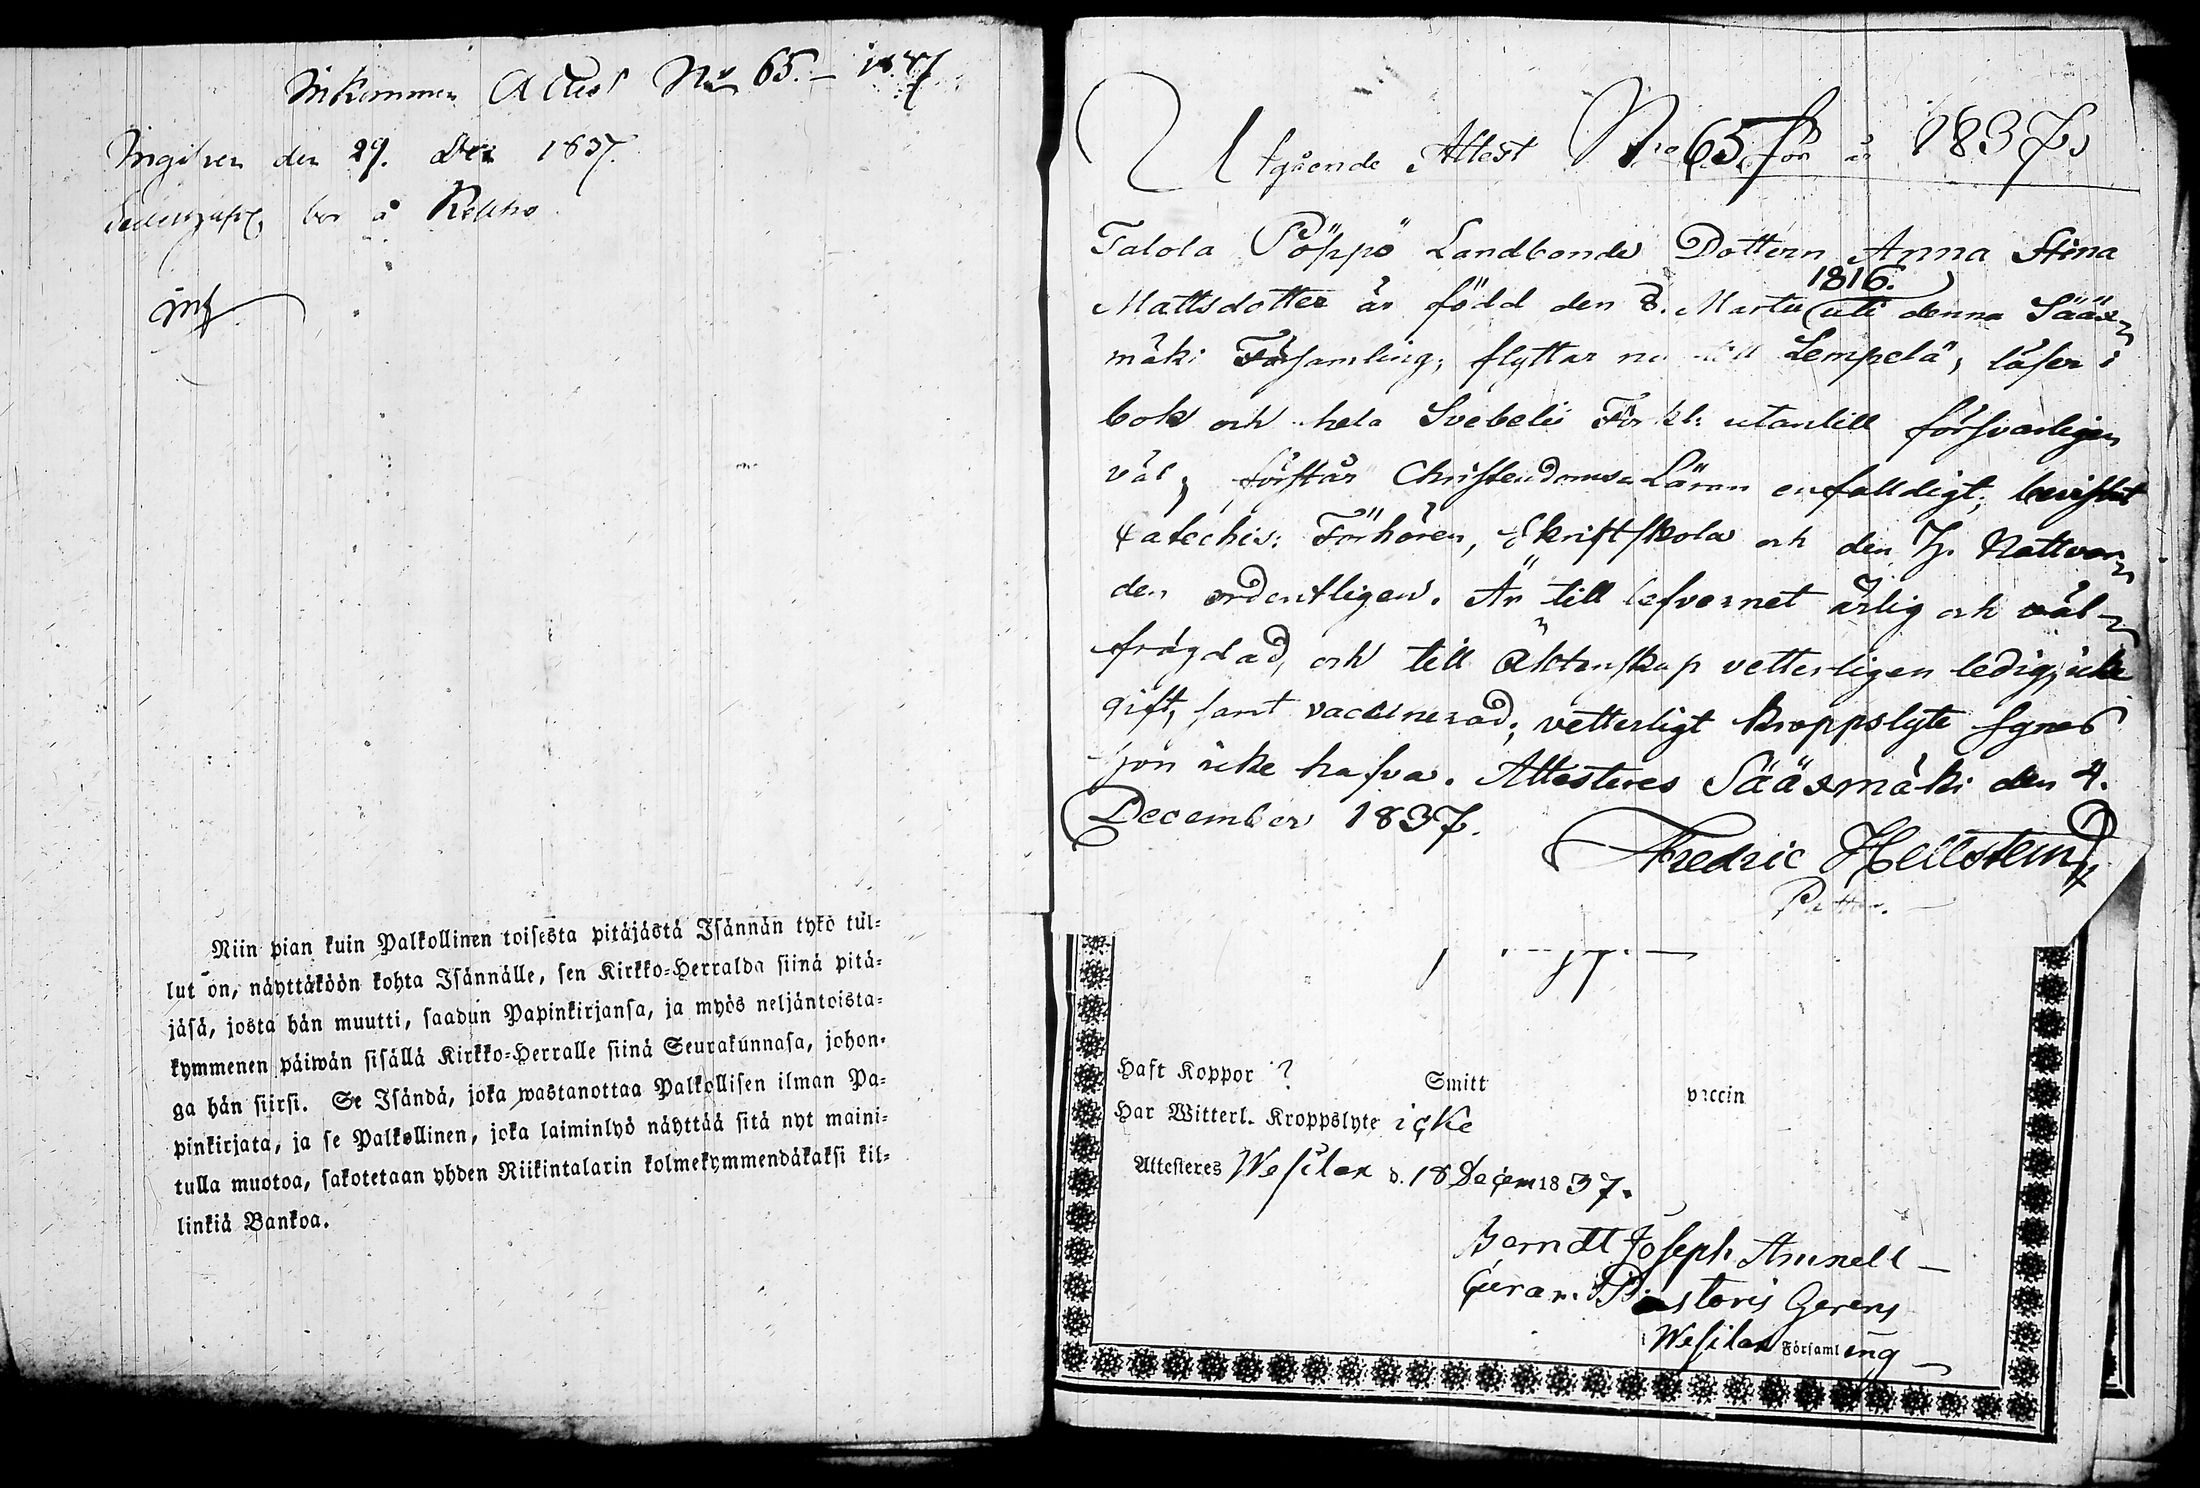 Inkommen Attest No 65. – 1837
Ingifven den 29. Dec 1837.
bor å
Niin pian kuin Palkollinen toisesta pitäjästä Isännän tykö tul-
lut on, näyttäköön kohta Isännälle, sen Kirkko-Herralda siinä pitä-
jäsä, josta hän muutti, saadun Papinkirjansa, ja myös neljäntoista-
kymmenen päiwän sisällä Kirkko-Herralle siinä Seurakunnasa, johon-
ga hän siirsi. Se Isändä, joka wastanottaa Palkollisen ilman Pa-
pinkirjata, ja se Palkollinen, joka laiminlyö näyttää sitä nyt maini-
tulla muotoa, sakotetaan yhden Riikintalarin kolmekymmendäkaksi kil-
linkiä Bankoa.
Utgående Attest No 65 för år 1837,
Talola Pöppö Landbonde Dottern Anna Stina
1816.
Mattsdotter är född den 8. Martii uti denna Sääx-
mäki Församling, flyttar nu till Lempelä, läser i
bok och hela Svebelii Förkl: utantill försvarligen
väl, förstår Christendoms Läran enfalldigt; bevistat
Catechis: Förhören, Skriftskola och den H. Nattvar-
den ordentligen. Är till lefvernet ärlig och väl-
frägdad, och till Äktenskap vetterligen ledig, icke
gift, samt vaccinerad; vetterligt kroppslyte synes
hon icke hafva. Attesteres Sääxmäki den 4.
December 1837.
Fredric Hellstein
Haft Koppor ? Smitt vaccin
Har Witterl. Kroppslyte icke
Attesteres Wesilax d. 18 Decem 1837.
Berndt Joseph Amnell –
Curam Pastoris Gerens
Wesilax Församling –